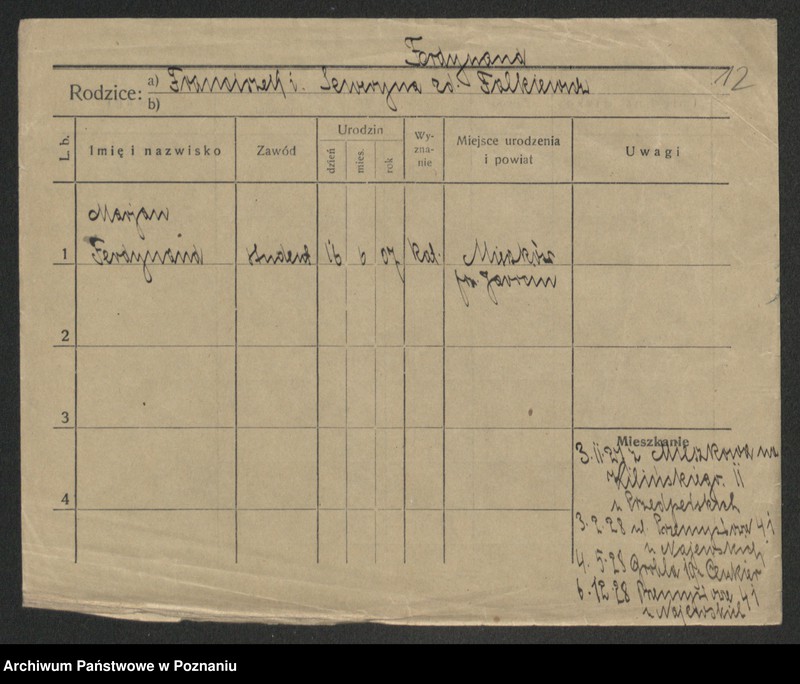 Ferdynand
12
Rodzice: a) Franciszek i. Seweryna zd. Falkiewicz
b)
L. b. Imię i nazwisko Zawód Urodzin dzień mies. rok Wy-zna-nie Miejsce urodzenia i powiat Uwagi
Marjan
1 Ferdynand student 16 6 07 kat. Mieszków
pow. Jarocin
2
3
Mieszkanie
3.11.27 z Mieszkowa na
Kilińskiego II
u
4
3.2.28 ul. Przemysłowa 41
u Najewskich
4.5.28 Grobla
6.12.28 Przemysłowa 41
u Najewskich
Archiwum Państwowe w Poznaniu